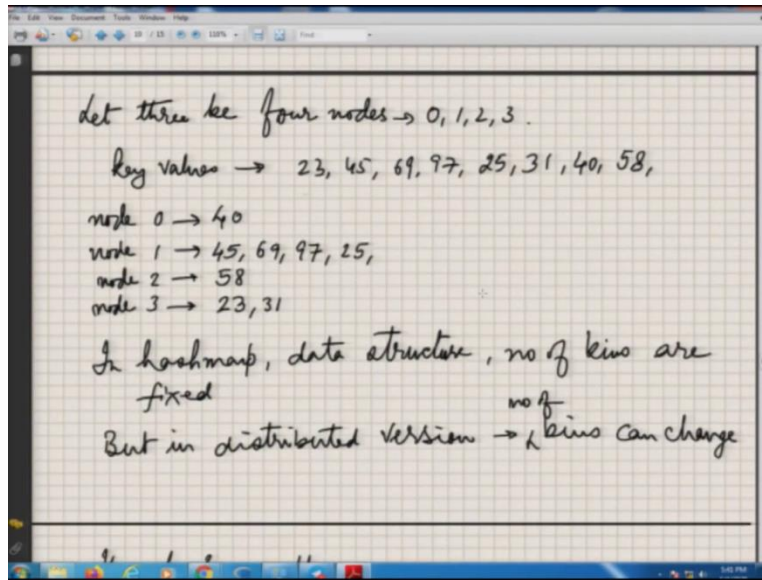 File Edit View Document Tools Window Help
19 / 15 118% Find
Let three be four nodes → 0, 1, 2, 3.
key values → 23, 45, 69, 97, 25, 31, 40, 58,
node 0 → 40
node 1 → 45, 69, 97, 25,
node 2 → 58
node 3 → 23, 31
In hashmap, data structure, no of bins are
fixed
no of
But in distributed version → bins can change
5:41 PM